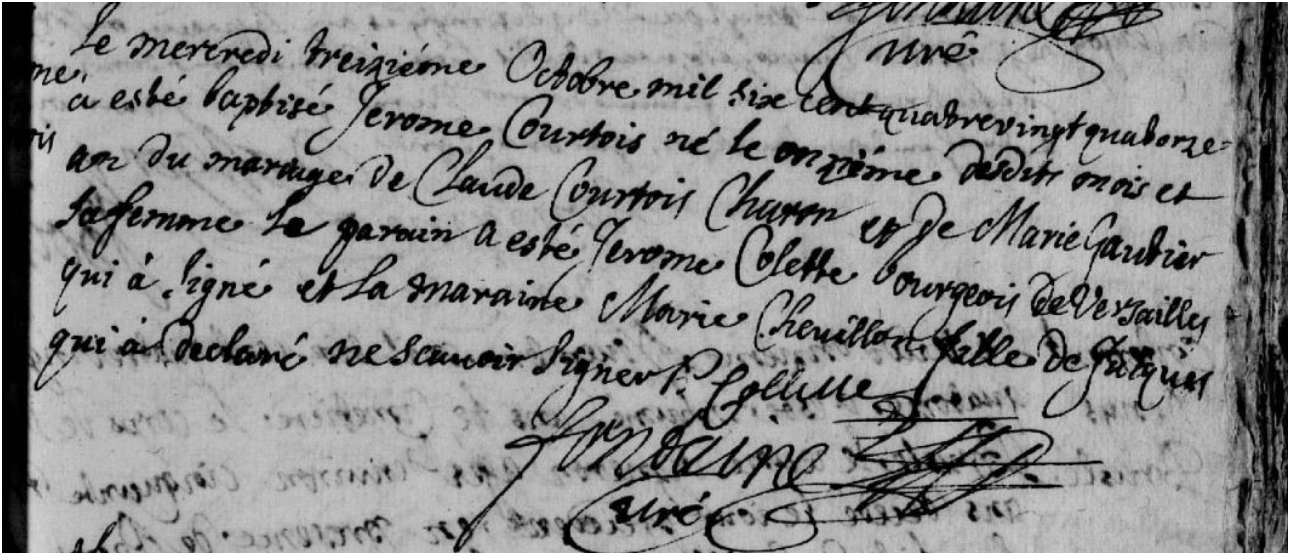 curé
Le mercredi treiziéme Octobre mil six cent quatrevingt quatorze
a esté baptisé Jerome Courtois né le onziéme desdits mois et
an du mariage de Claude Courtois Charon et de Marie Gautier
sa femme le parain a esté Jerome Colette bourgeois de Versailles
qui à signé et la maraine Marie Chevillon fille de Jacques
qui à declaré ne scavoir signer
Collette
fontaine
curé